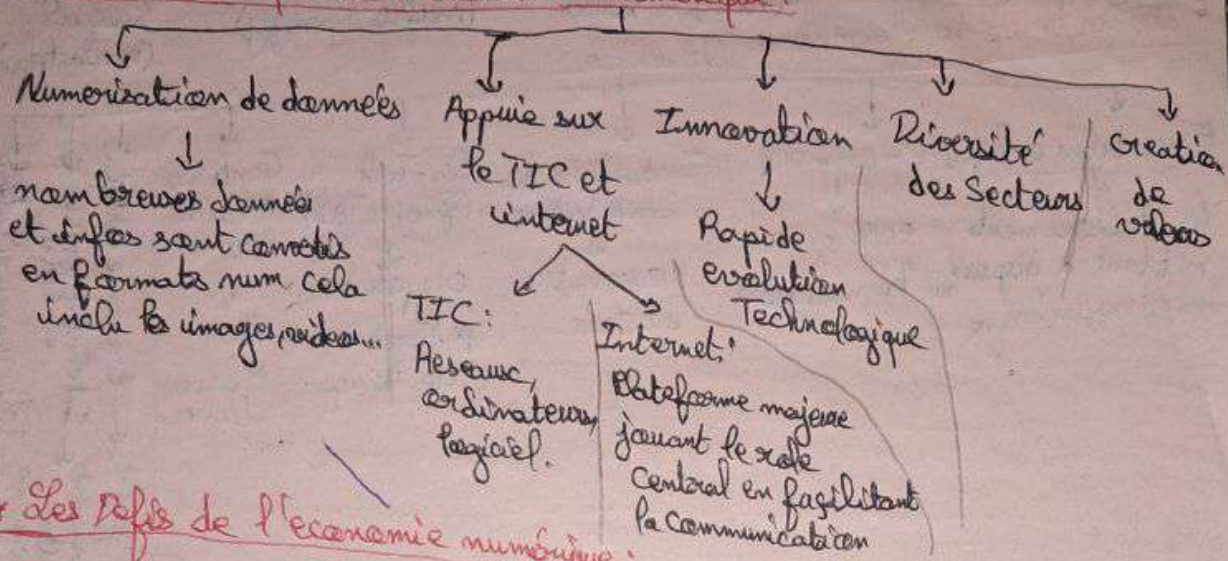 Numerisation de données
↓
nombreuses données
et infos sont convertis
en formats num cela
inclu les images, videos...
Appuie sur
le TIC et
internet
TIC:
Reseaux,
ordinateurs,
logiciel.
Internet:
Plateforme majeure
jouant le role
central en fagilitant
la communication
Innovation
↓
Rapide
evolution
Technologique
Diversité
des Secteurs
Creation
de
valeurs
Les Defis de l'economie numérique: